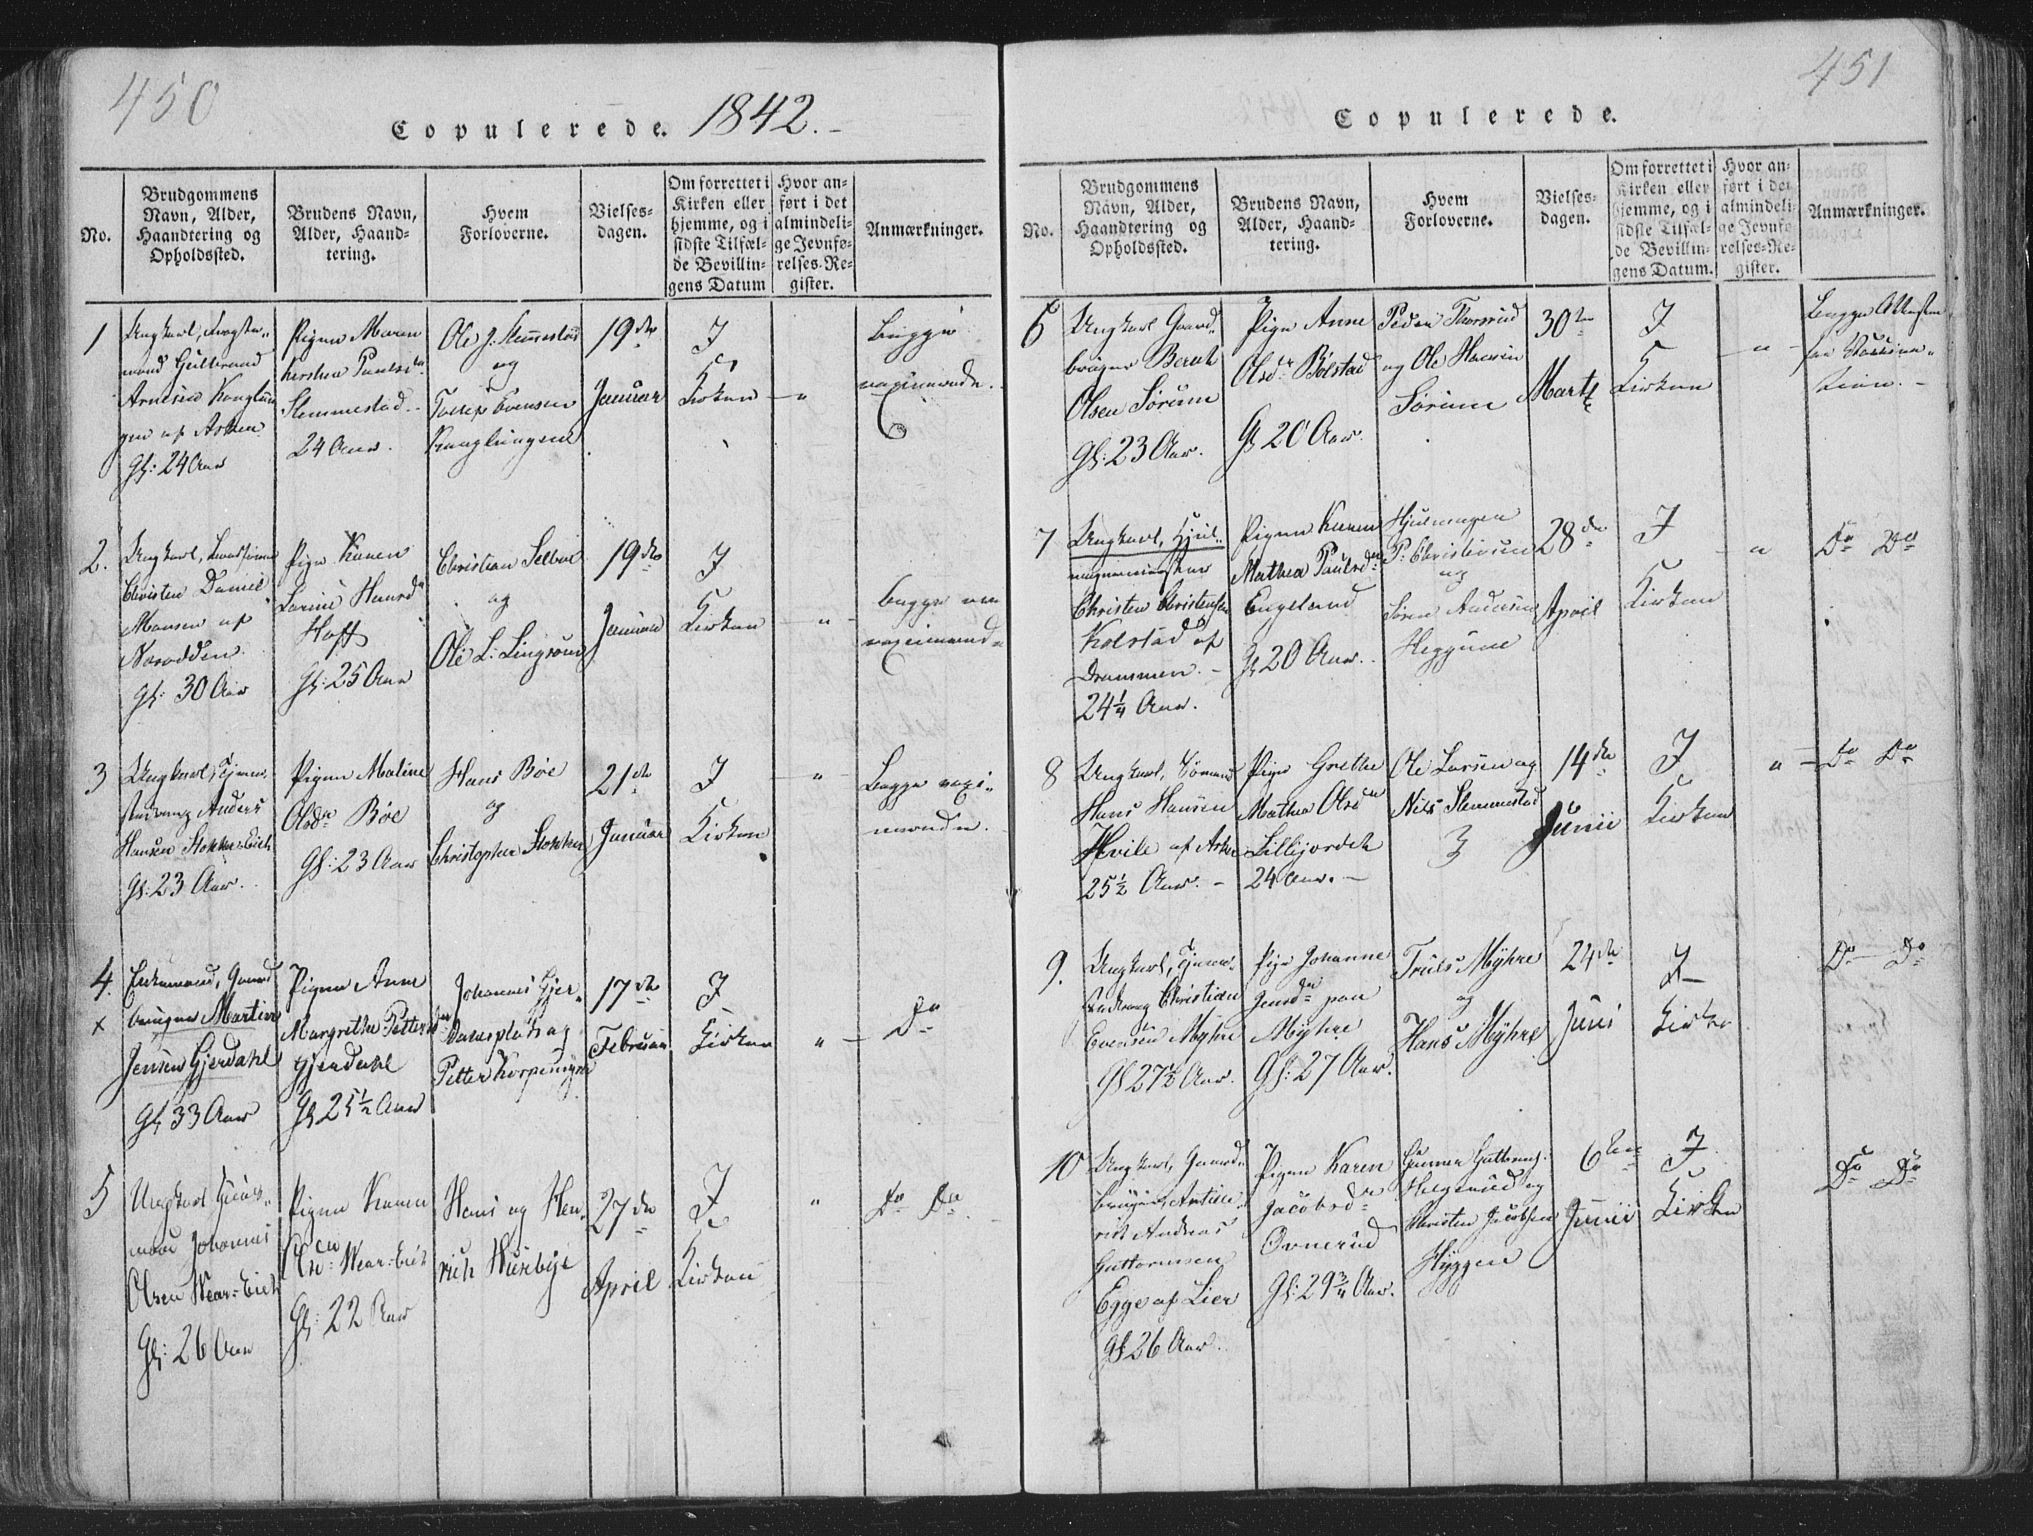 450
Copulerede. 1842.
No.
Brudgommens
Navn, Alder,
Haandtering og
Opholdssted.
Brudens Navn,
Alder, Haand-
tering.
Hvem
Forloverne.
Vielses-
dagen.
Om forrettet i
Kirken eller
hjemme, og i
sidste Tilfæl-
de Bevillin-
gens Datum
Hvor an-
ført i det
almindeli-
ge Jevnfø-
relses-Re-
gister.
Anmærkninger.
1
Ungkarl,
mand Gulbrand
Arnesen
af Asker
Gl: 24 Aar
Pigen Maren
Paulsdr
Slemmestad
24 Aar.
Ole J. Slemmestad
og
Evensen
19de
Januar
I
Kirken
"
Begge
vaxinerede.
2.
Ungkarl,
Christen Daniel
Monsen af
Narodden
Gl: 30 Aar
Pige Karen
Larine Hansdr
Hoff
Gl: 25 Aar
Christian Selvig
og
Ole L.
19de
Januar
I
Kirken
"
begge
3
Ungkarl, Tjene-
stedreng Anders
Hansen Stokker-Eiet
Gl: 23 Aar.
Pigen Maline
Olsdr Böe
Gl: 23 Aar
Hans Böe
og
Christopher Stokker
21de
Januar
I
Kirken
"
Begge vaxi-
nerede.
4.
x
Enkemand, Gaard
bruger Martin
Jensen Gjerdahl
Gl: 33 Aar
Pigen Anne
Margrethe Pettersdr
Gjerdahl
Gl 25 1/2 Aar
Johannes Gjer-
og
Petter Korpemyr
17de
Februar
I
Kirken
"
Do
5
Ungkarl Huus-
mand Johannes
Olsen Wear-Eiet
Gl: 26 Aar
Pigen Karen
Wear-Eiet
Gl: 22 Aar
Hans og Hen-
rich Huseby
27de
April
I
Kirken
"
Do Do
451
Copulerede.
No.
Brudgommens
Navn, Alder,
Haandtering og
Opholdssted.
Brudens Navn,
Alder, Haand-
tering.
Hvem
Forloverne.
Vielses-
dagen.
Om forrettet i
Kirken eller
hjemme, og i
sidste Tilfæl-
de Bevillin-
gens Datum.
Hvor an-
ført i det
almindeli-
ge Jevnfø-
relses-Re-
gister.
Anmærkninger.
6
Ungkarl Gaard-
bruger Bernt
Olsen Sörum
Gl: 23 Aar.
Pige Anne
Olsdr Bölstad
Gl 20 Aar.
Peder Thorsrud
og Ole Hansen
Sörum
30te
Marts
I
Kirken
"
Begge Attester
7
Ungkarl, Hjul-
Christen Christensen
Kolstad af
Drammen.
24 1/4 Aar.
Pigen Karen
Mathea Paulsdr
Engeland
Gl 20 Aar.
P. Christensen
og
Sören Andersen
Heggum
28de
April
I
Kirken
"
Do Do
8
Ungkarl, Sömand
Hans Hansen
Hvile af Asker
25 1/2 Aar.
Pige Grethe
Mathea Olsdr
Lillejordet
24 Aar.
Ole Larsen og
Nils Slemmestad
14de
Junii
I
Kirken
"
Do Do
9.
Ungkarl, Tjene-
stedreng Christian
Evensen Myhre
Gl 27 1/2 Aar.
Pige Johanne
Jensdr paa
Myhre
Gl: 27 Aar.
Truls Myhre
og
Hans Myhre
24de
Juni
I
Kirke
Do Do
10
Ungkarl, Gaard-
bruger
Andreas
Guttormsen
Egge af Lier
Gl 26 Aar.
Pigen Karen
Jacobsdr
Ovnerud
Gl: 29 3/4 Aar.
Gunner
Helgerud og
Christen Jacobsen
Hyggen
6te
Junii
I
Kirken
Do Do